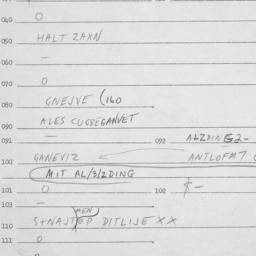 O
040
050 HALT ZAXN
060 —
070 O
080 GNEJVE (160
090 ALES CUGGEGANVET
091 — 092 ALZDING2-
GANEVIZ ANTLOFM7
100 MIT AL/3/2DING
101 O 102 $-
103 —
MEN
110 S+NAJT EP DITLIJE XX
111 O